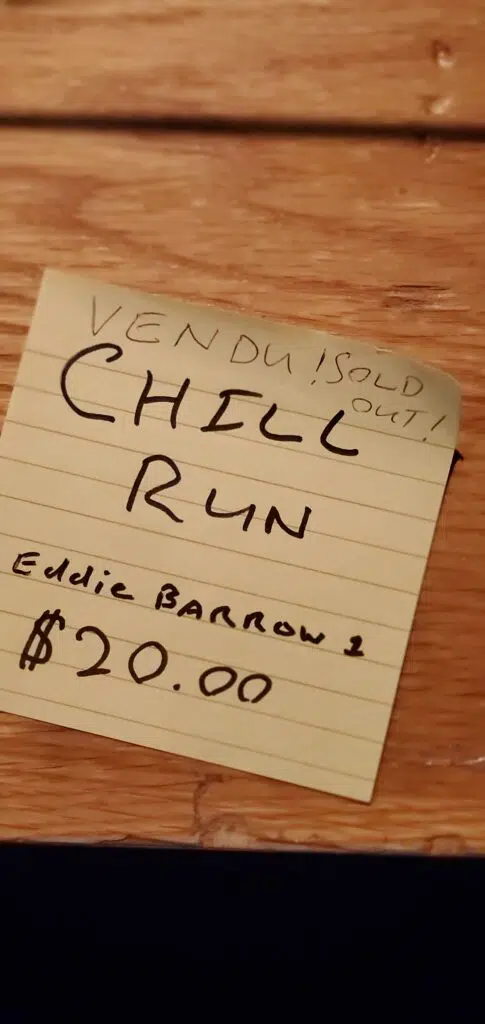 VENDU! SOLD
OUT!
CHILL
RUN
Eddie BARROW 1
$20.00